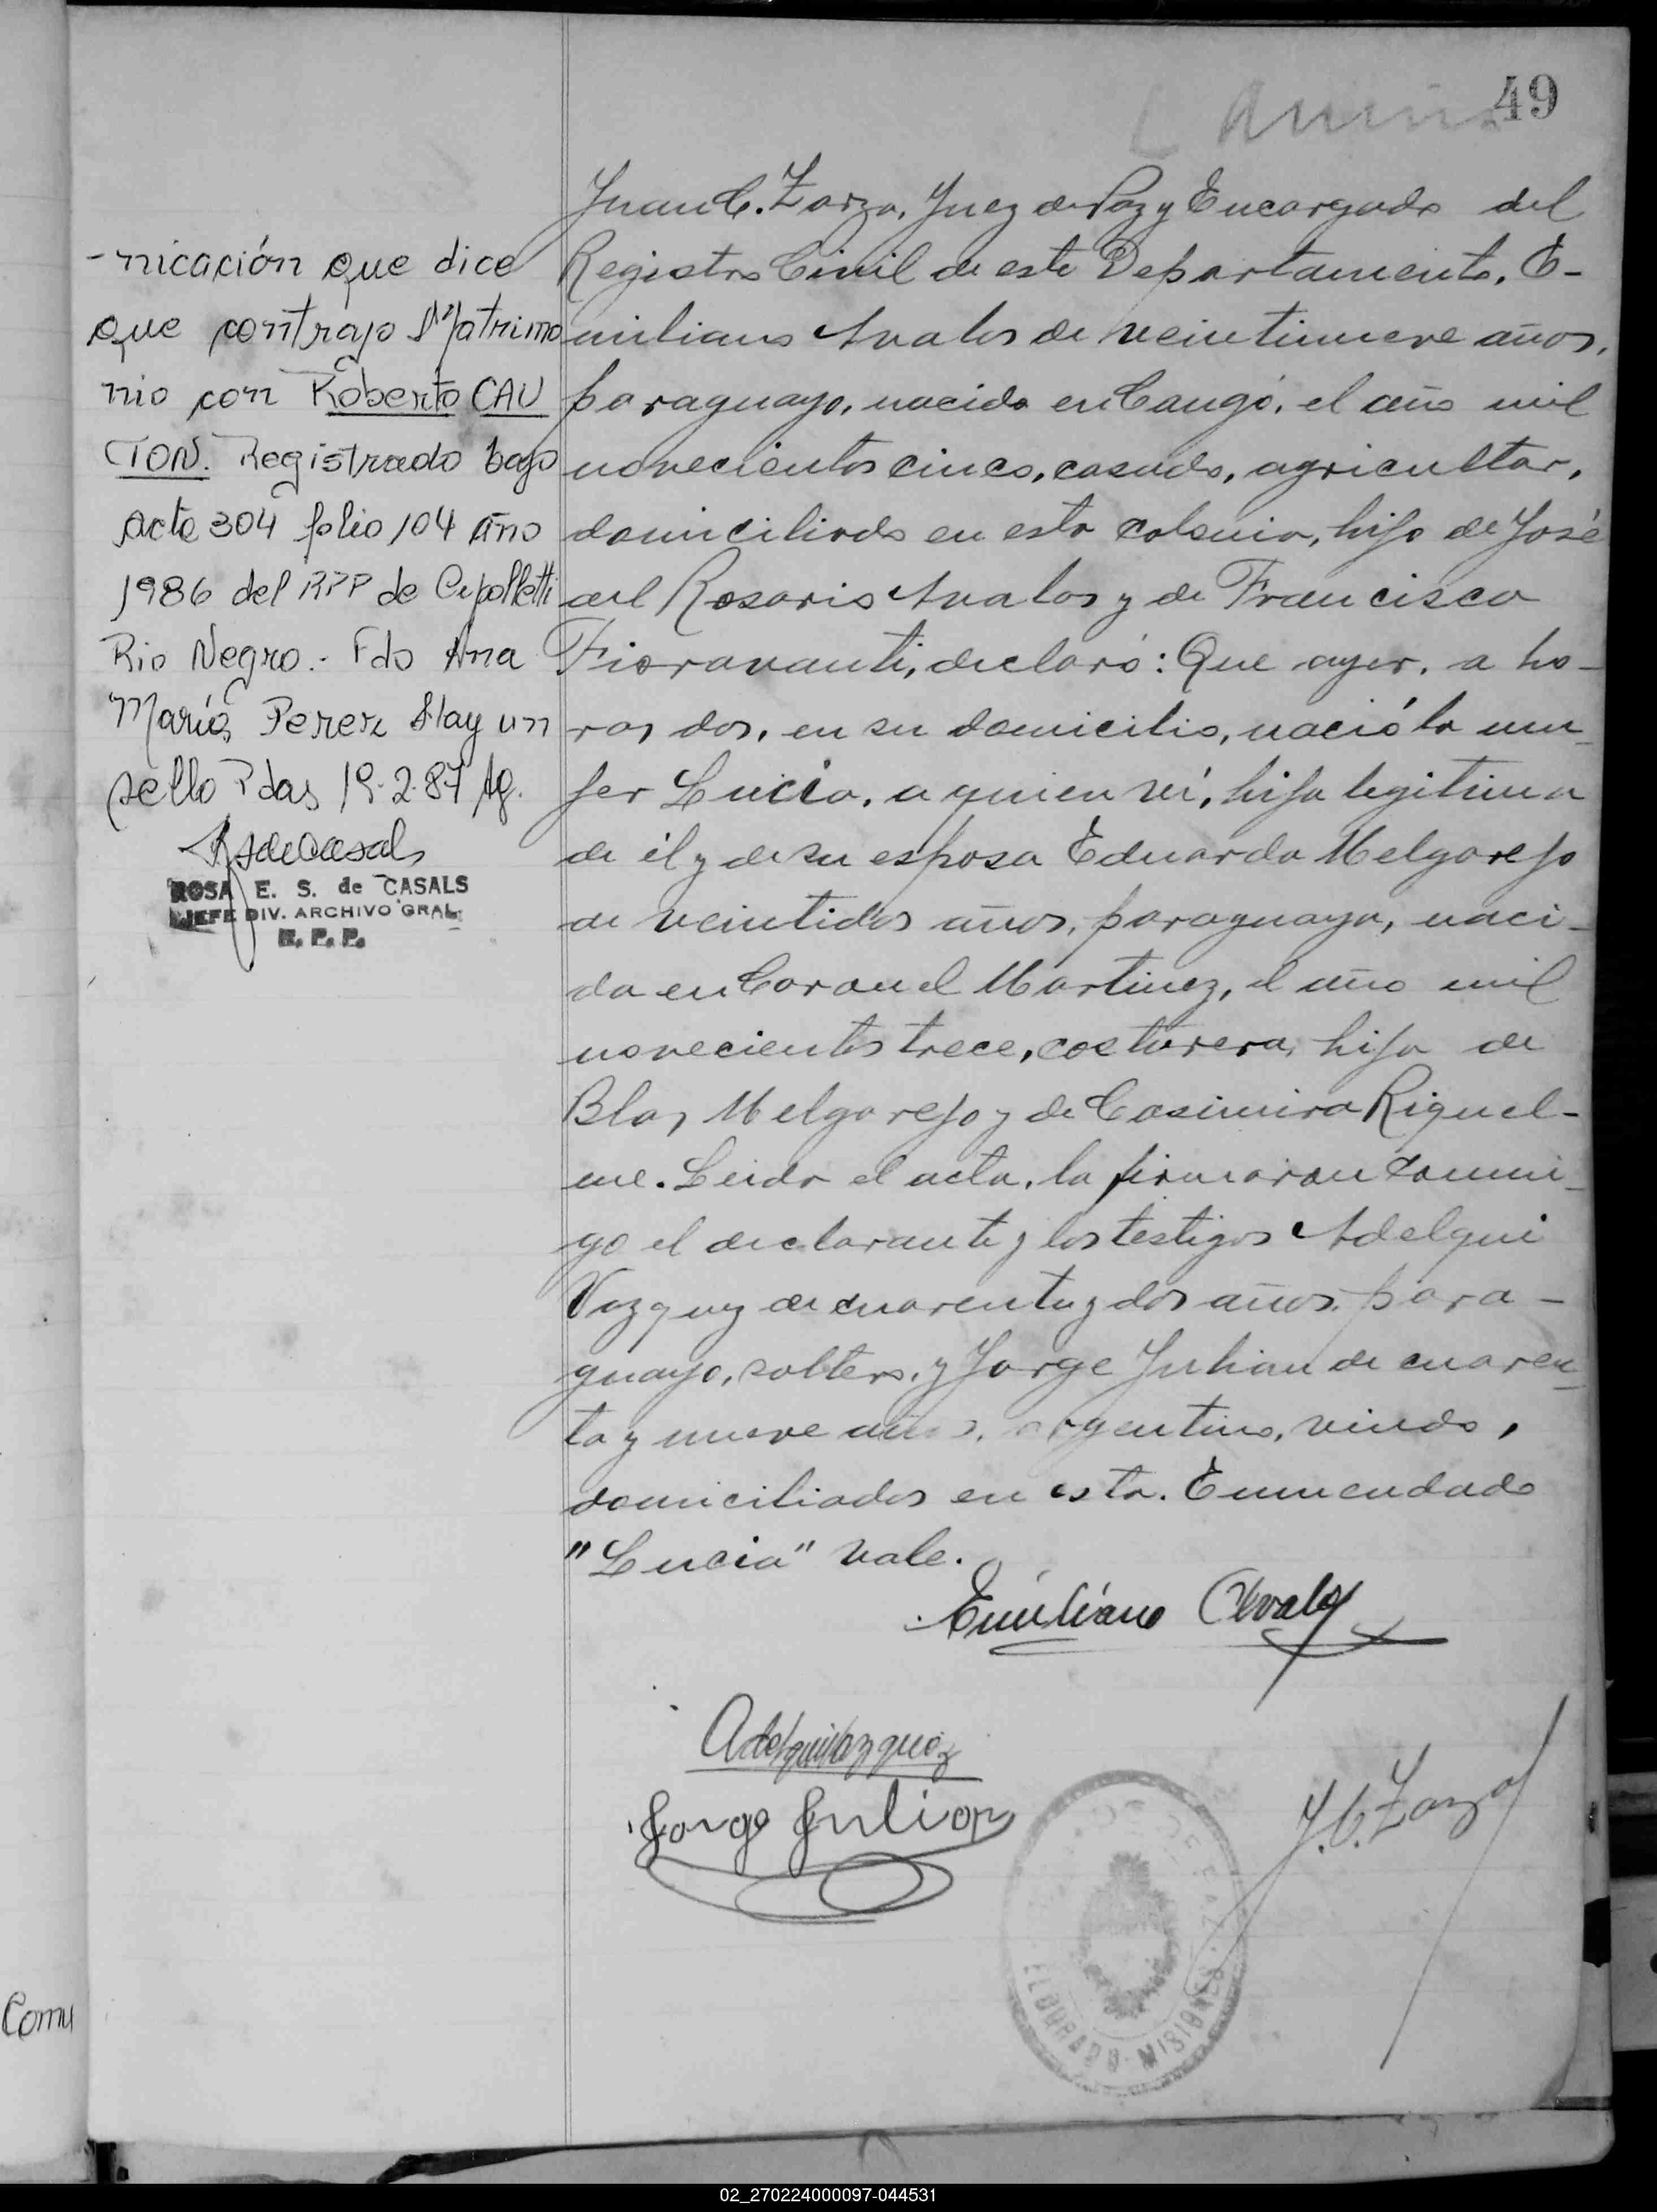 49
Juan C. Zarza, Juez de Paz y Encargado del
Registro Civil de este Departamento, E-
miliano Avalos de veintinueve años,
paraguayo, nacido en Cangó, el año mil
novecientos cinco, casado, agricultor,
domiciliado en esta colonia, hijo de José
del Rosario Avalos y de Francisca
Fioravanti, declaró: Que ayer, a ho-
ras dos, en su domicilio, nació la mu-
jer Lucia, a quien ví, hija legitima
de él y de su esposa Eduarda Melgarejo
de veintidos años, paraguaya, naci-
da en Coronel Martinez, el año mil
novecientos trece, costurera, hija de
Blas Melgarejo y de Casimira Riquel-
me. Leida el acta, la firmaron conmi-
go el declarante y los testigos Adelqui
Vazquez de cuarenta y dos años, para-
guayo, soltero, y Jorge Julian de cuaren-
ta y nueve años, argentino, viudo,
domiciliados en esta. Enmendado
"Lucia" vale.
Emiliano Avalos
Adelqui Vazquez
Jorge Julian
J. C. Zarza
ELDORADO - MISIONES
-nicación que dice
que contrajo Matrimo
nio con Roberto CAU
TON. Registrado bajo
acta 304 folio 104 Año
1986 del RPP de Cipolletti
Rio Negro.- Fdo Ana
María Perez Hay un
sello Pdas 19-2-87
ROSA E. S. de CASALS
JEFE DIV. ARCHIVO GRAL.
R. P. P.
Comu
02_270224000097-044531